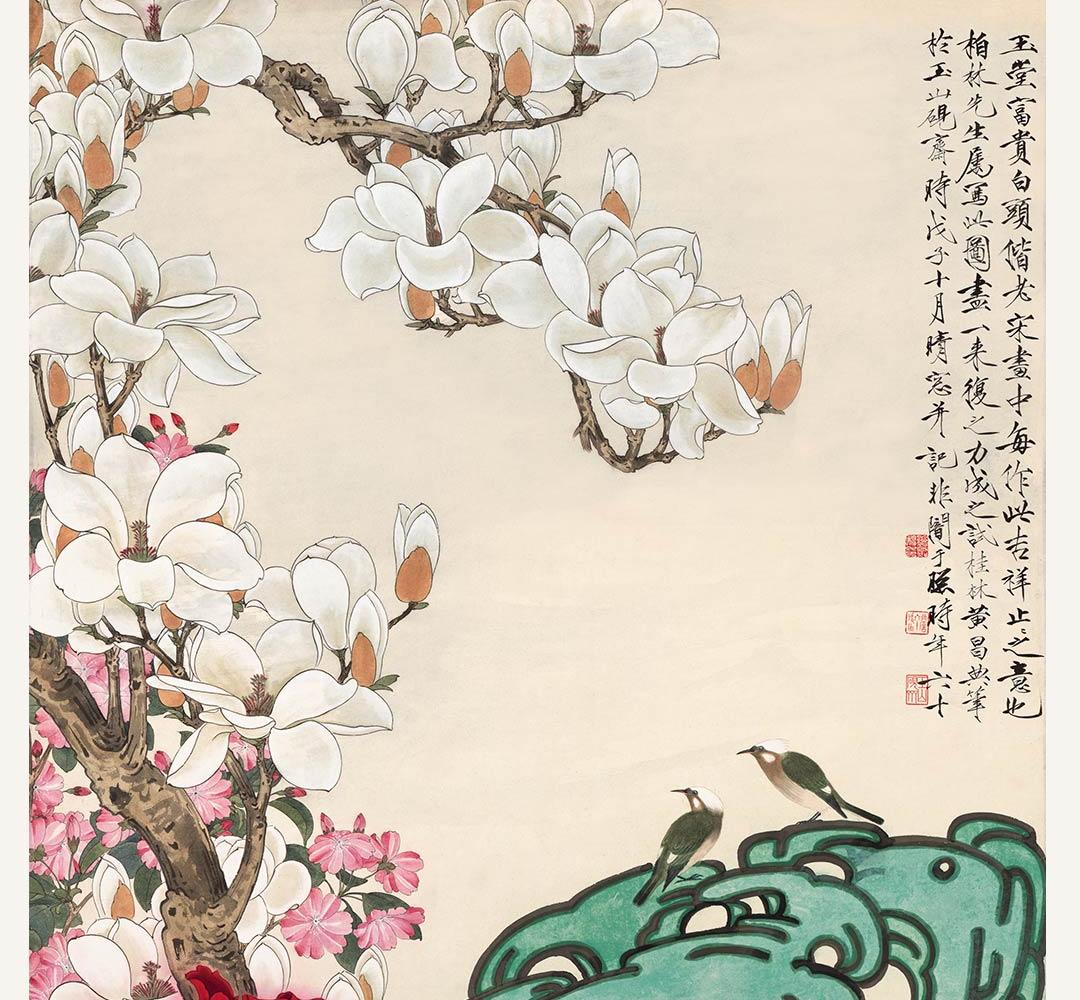 玉堂富貴白頭偕老宋畫中每作此吉祥止止之意也
柏林先生屬寫此圖盡一來復之力成之試桂林黃昌典筆
於玉山硯齋時戊子十月晴窓并記非闇于照時年六十